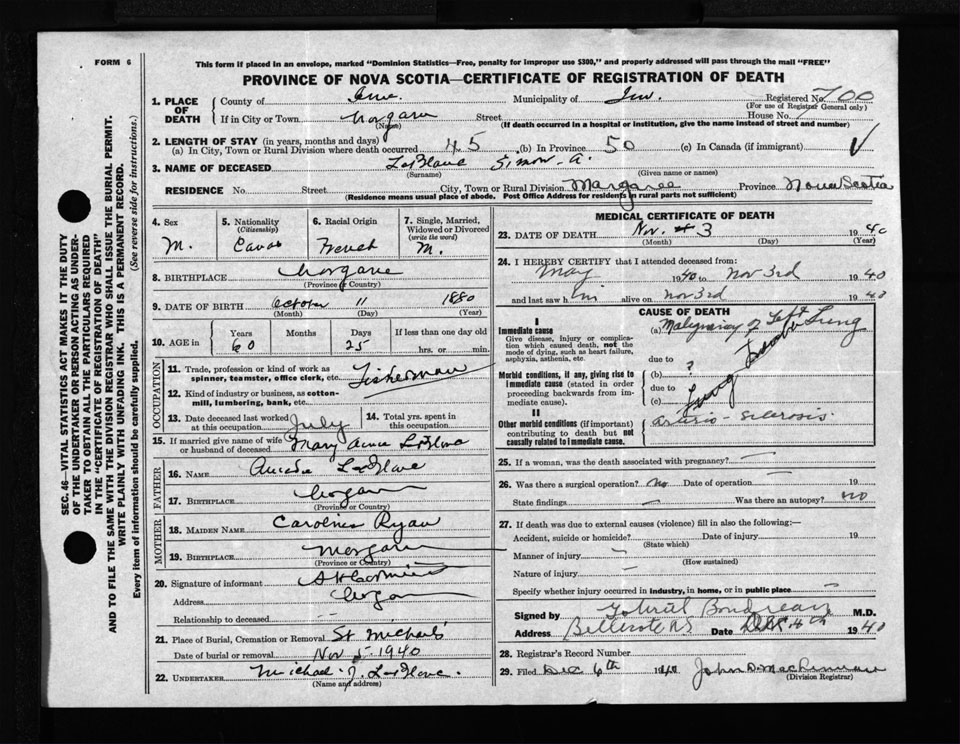 FORM 6
This form if placed in an envelope, marked "Dominion Statistics—Free, penalty for improper use $300," and properly addressed will pass through the mail "FREE"
PROVINCE OF NOVA SCOTIA—CERTIFICATE OF REGISTRATION OF DEATH
SEC. 46—VITAL STATISTICS ACT MAKES IT THE DUTY
OF THE UNDERTAKER OR PERSON ACTING AS UNDER-
TAKER TO OBTAIN ALL THE PARTICULARS REQUIRED
IN THE "CERTIFICATE OF REGISTRATION OF DEATH"
AND TO FILE THE SAME WITH THE DIVISION REGISTRAR WHO SHALL ISSUE THE BURIAL PERMIT.
WRITE PLAINLY WITH UNFADING INK. THIS IS A PERMANENT RECORD.
Every item of information should be carefully supplied. (See reverse side for instructions.)
1. PLACE OF DEATH
County of Inv. Municipality of Inv. Registered No. 700
(For use of Registrar General only)
If in City or Town Street House No.
(Name) (If death occurred in a hospital or institution, give the name instead of street and number)
2. LENGTH OF STAY (in years, months and days)
(a) In City, Town or Rural Division where death occurred 45 (b) In Province 50 (c) In Canada (if immigrant)
3. NAME OF DECEASED LeBlanc Simon A.
(Surname) (Given name or names)
RESIDENCE No. Street City, Town or Rural Division Margaree Province Nova Scotia
(Residence means usual place of abode. Post Office Address for residents in rural parts not sufficient)
4. Sex M.
5. Nationality (Citizenship)
6. Racial Origin French
7. Single, Married, Widowed or Divorced (write the word) M.
8. BIRTHPLACE
(Province or Country)
9. DATE OF BIRTH October 11 1880
(Month) (Day) (Year)
10. AGE in Years 60 Months Days 25 If less than one day old hrs. or min.
OCCUPATION
11. Trade, profession or kind of work as spinner, teamster, office clerk, etc. Fisherman
12. Kind of industry or business, as cotton-mill, lumbering, bank, etc.
13. Date deceased last worked at this occupation July
14. Total yrs. spent in this occupation
15. If married give name of wife or husband of deceased Mary Anne LeBlanc
FATHER
16. NAME LeBlanc
17. BIRTHPLACE
(Province or Country)
MOTHER
18. MAIDEN NAME Caroline Ryan
19. BIRTHPLACE Margaree
(Province or Country)
20. Signature of informant
Address
Relationship to deceased
21. Place of Burial, Cremation or Removal St Michaels
Date of burial or removal Nov 5 1940
22. UNDERTAKER Michael J. LeBlanc.
(Name and address)
MEDICAL CERTIFICATE OF DEATH
23. DATE OF DEATH Nov. 3 1940
(Month) (Day) (Year)
24. I HEREBY CERTIFY that I attended deceased from:
May 1940 to Nov 3rd 1940
and last saw him alive on Nov 3rd 1940
CAUSE OF DEATH
I
Immediate cause
Give disease, injury or complication which caused death, not the mode of dying, such as heart failure, asphyxia, asthenia, etc.
(a) Malignancy of Left Lung
due to
Morbid conditions, if any, giving rise to immediate cause (stated in order proceeding backwards from immediate cause).
(b) ?
due to
(c)
Lung
II
Other morbid conditions (if important) contributing to death but not causally related to immediate cause.
Arterio-sclerosis.
25. If a woman, was the death associated with pregnancy?
26. Was there a surgical operation? No Date of operation 19
State findings Was there an autopsy? no
27. If death was due to external causes (violence) fill in also the following:—
Accident, suicide or homicide? Date of injury 19
(State which)
Manner of injury
(How sustained)
Nature of injury
Specify whether injury occurred in industry, in home, or in public place
Signed by Gabriel Boudreau M.D.
Address Date Dec 4th 1940
28. Registrar's Record Number
29. Filed Dec 6th 1940
(Division Registrar)